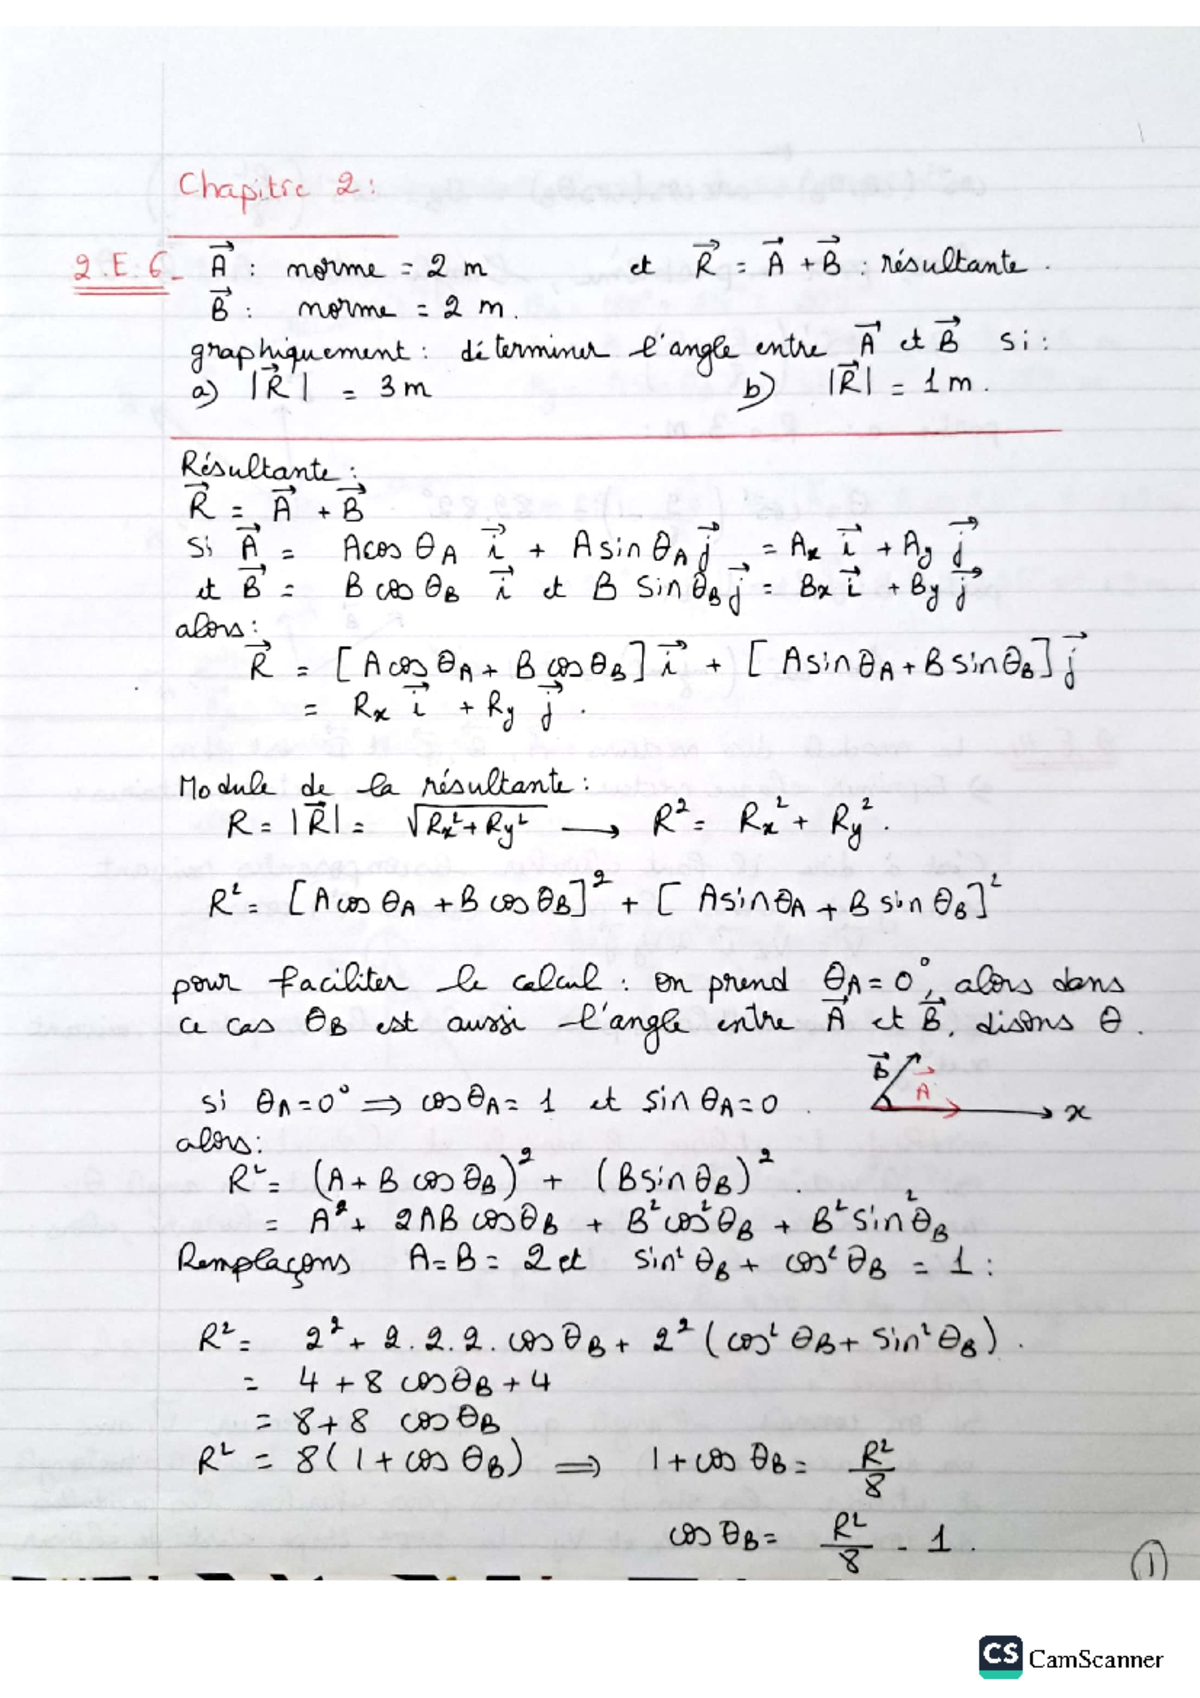 Chapitre 2:
2.E.6_ A⃗ : norme = 2 m et R⃗ = A⃗ + B⃗ : résultante.
B⃗ : norme = 2 m.
graphiquement : déterminer l'angle entre A⃗ et B⃗ si :
a) |R⃗| = 3 m b) |R⃗| = 1 m.
Résultante :
R⃗ = A⃗ + B⃗
Si A⃗ = A cos θA i⃗ + A sin θA j⃗ = Ax i⃗ + Ay j⃗
et B⃗ = B cos θB i⃗ et B sin θB j⃗ = Bx i⃗ + By j⃗
alors :
R⃗ = [A cos θA + B cos θB] i⃗ + [A sin θA + B sin θB] j⃗
= Rx i⃗ + Ry j⃗ .
Module de la résultante :
R = |R⃗| = √(Rx² + Ry²) → R² = Rx² + Ry² .
R² = [A cos θA + B cos θB]² + [A sin θA + B sin θB]²
pour faciliter le calcul : on prend θA = 0°, alors dans
ce cas θB est aussi l'angle entre A⃗ et B⃗, disons θ.
B⃗ A⃗ x
si θA = 0° ⟹ cos θA = 1 et sin θA = 0 .
alors :
R² = (A + B cos θB)² + (B sin θB)² .
= A² + 2AB cos θB + B² cos² θB + B² sin² θB
Remplaçons A = B = 2 et sin² θB + cos² θB = 1 :
R² = 2² + 2.2.2. cos θB + 2² (cos² θB + sin² θB) .
= 4 + 8 cos θB + 4
= 8 + 8 cos θB
R² = 8(1 + cos θB) ⟹ 1 + cos θB = R²/8
cos θB = R²/8 - 1 .
1
CS CamScanner